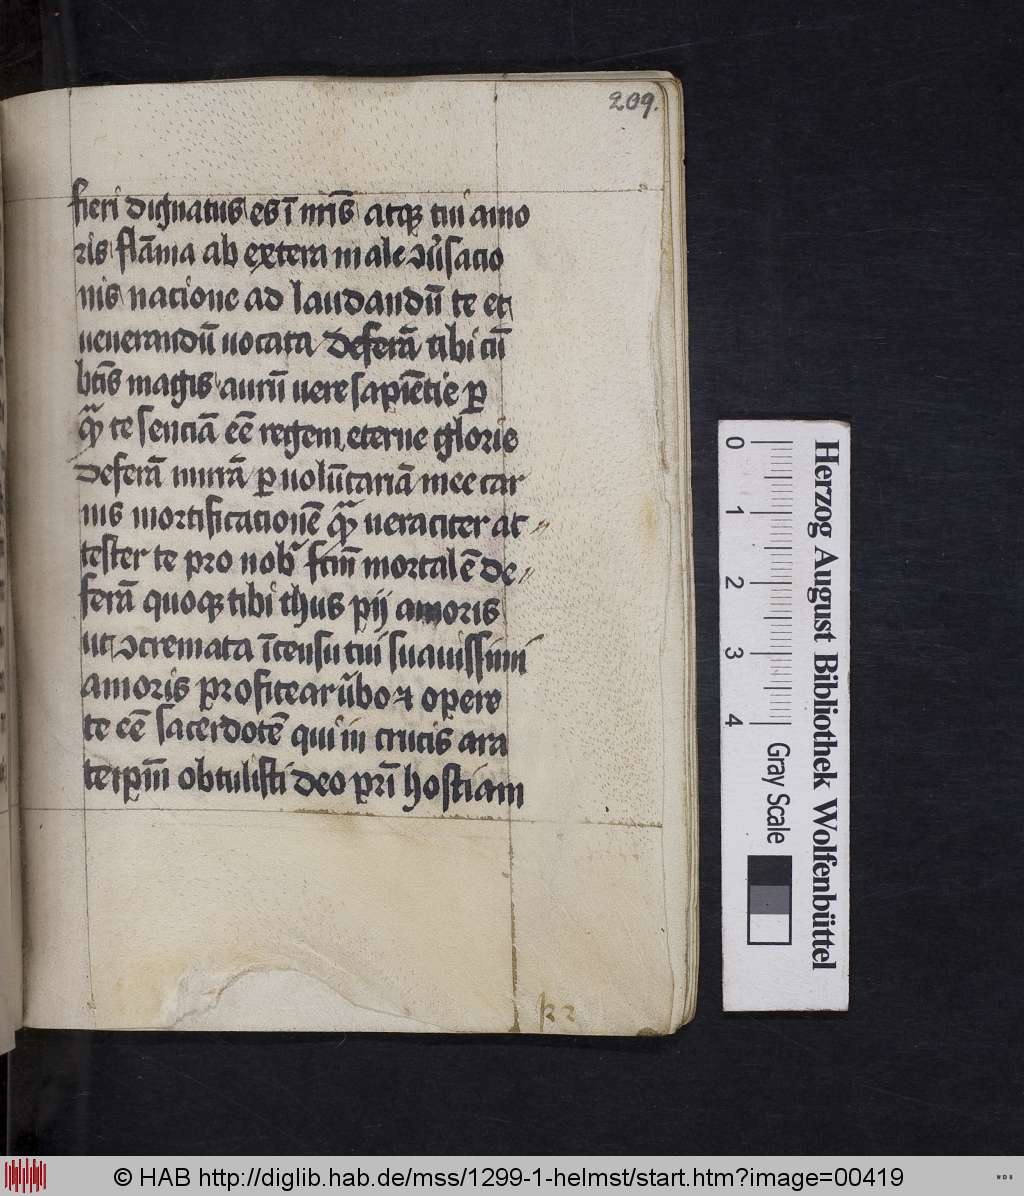 209.
fieri dignatus es ī nr̄is atqꝫ tui amo
ris flāma ab extera male ꝯūsacio
nis nacione ad laudandū te et
uenerandū uocata deferā tibi cū
btīs magis aurū uere sapīetie ꝑ
qͣꝫ te senciā eē regem eterne glorie
deferā mirrā ꝑ uolūtariā mee car
nis mortificacionē qͣꝫ ueraciter at〃
tester te pro nobꝭ fcm̄ mortalē de〃
ferā quoqꝫ tibi thus pij amoris
ut ꝯcremata īcensu tui suauissimi
amoris profitear ūbo ⁊ opere
te eē sacerdotē qui in crucis ara
teipm̄ obtulisti deo pr̄i hostiam
Herzog August Bibliothek Wolfenbüttel
0 1 2 3 4 Gray Scale
© HAB http://diglib.hab.de/mss/1299-1-helmst/start.htm?image=00419